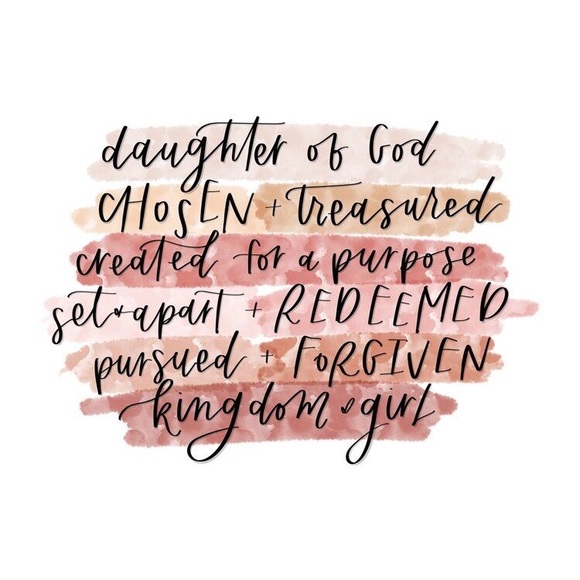 daughter of God
CHOSEN + treasured
created for a purpose
set apart + REDEEMED
pursued + FORGIVEN
kingdom girl